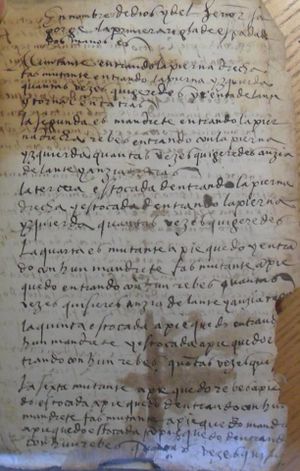 En nombre de dios y del señor san
jorge la primera regla de espada de
dos manos es
Mutante entrando la pierna drecha
tas mutante entrando la pierna yzquierda
quantas vezes quigeredes anzia delante
y tornar anzia tras
la segunda es mandrete entrando la pier
na drecha rebes entrando con la pierna
yzquierda quantas vezes quigeredes anzia
delante y anzia tras
la tercera estocada dentrando la pierna
drecha y estocada dentrando la pierna
yzquierda quantas vezes quigeredes
la quarta es mutante a pie quedo y entra
do con hun mandrete tas mutante a pie
quedo entrando con hun rebes quantas
vezes quisieres anzia delante y anzia tras
la quinta estocada a pie quedo entrando
hun mandrete y estocada a pie quedo en
trando con hun rebes quantas vezes qui
la sixta mutante a pie quedo rebes a pie
do estocada a pie quedo dentrando con hun
mandrete tas mutante a pie quedo mandre
a pie quedo estocada a pie quedo dentrando
con hun rebes quantas vezes qui